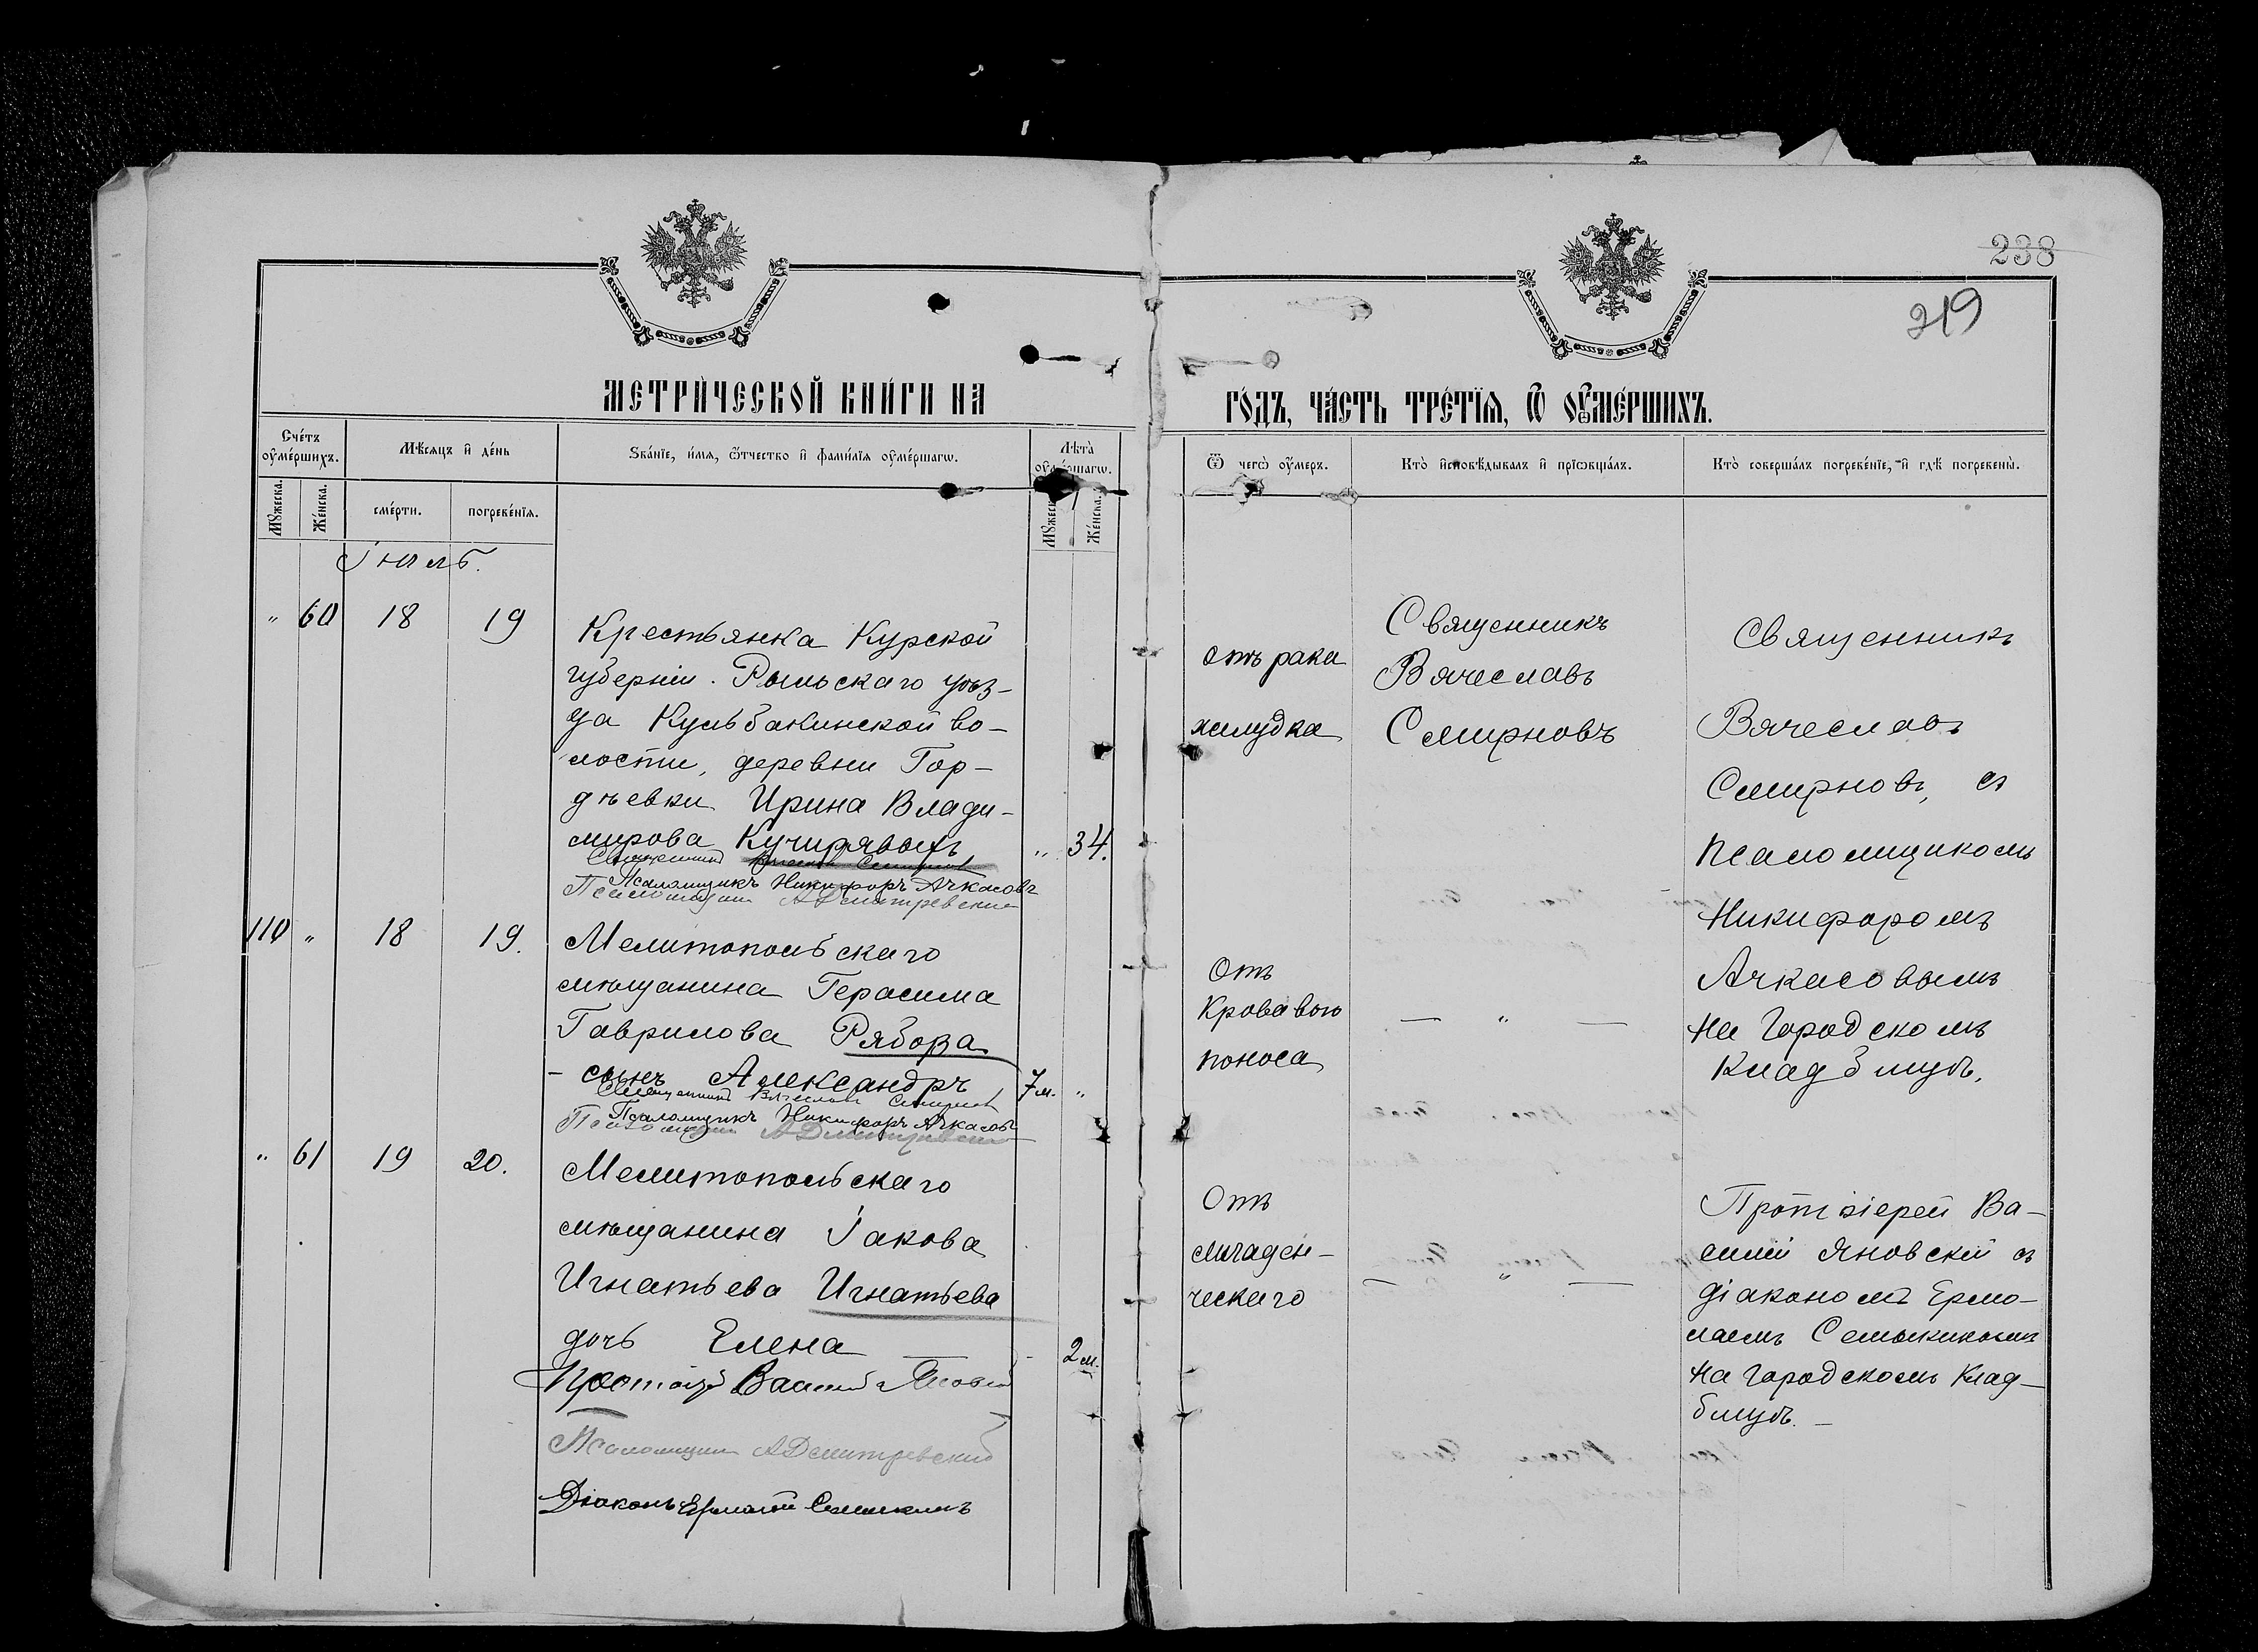 238
219
МЕТРИ́ЧЕСКОЙ КНИ́ГИ НА
ГО́ДЪ, ЧА́СТЬ ТРЕ́ТЇѦ, Ѿ ОУМЕ́РШИХЪ.
Сче́тъ оуме́ршихъ.
Мѣ́сѧцъ и҆ де́нь
Зва́нїе, и҆́мѧ, ѻ҆́тчество и҆ фами́лїѧ оуме́ршагѡ.
Лѣ́та оуме́ршагѡ.
Ѿ чегѡ̀ оу҆́меръ.
Кто̀ и҆сповѣ́дывалъ и҆ прїѡбща́лъ.
Кто̀ соверша́лъ погребе́нїе, и҆ гдѣ̀ погребены̀.
Мꙋ́жеска.
Же́нска.
сме́рти.
погребе́нїѧ.
Мꙋ́жеска.
Же́нска.
Іюль.
" 60 18 19
Крестьянка Курской
губерніи. Рыльскаго уѣз-
да Кульбакинской во-
лости, деревни Гор-
дѣевки Ирина Влади-
мирова Кучирявыхъ " 34.
Священникъ Вячеславъ Смирновъ
Псаломщикъ Никифоръ Ачкасовъ
Псаломщикъ А Дмитревскій
отъ рака
желудка
Священникъ
Вячеславъ
Смирновъ
Священникъ
Вячеславъ
Смирновъ, съ
псаломщикомъ
Никифоромъ
Ачкасовымъ
на Городскомъ
Кладбищѣ.
110 " 18 19.
Мелитопольскаго
мѣщанина Герасима
Гаврилова Рябова
- сынъ Александръ 7 м. "
Священникъ Вячеславъ Смирновъ
Псаломщикъ Никифоръ Ачкасовъ
Псаломщикъ А Дмитревскій
Отъ
Кроваваго
поноса
— " —
" 61 19 20.
Мелитопольскаго
мѣщанина Іакова
Игнатьева Игнатьева
дочь Елена — 2 м.
Протоіерей Василій Яновскій
Псаломщикъ А Дмитревскій
Діаконъ Ермолай Семыкинъ
Отъ
младен-
ческаго
— " —
Протоіерей Ва-
силій Яновскій съ
діакономъ Ермо-
лаемъ Семыкинымъ
на Городскомъ Клад-
бищѣ. —